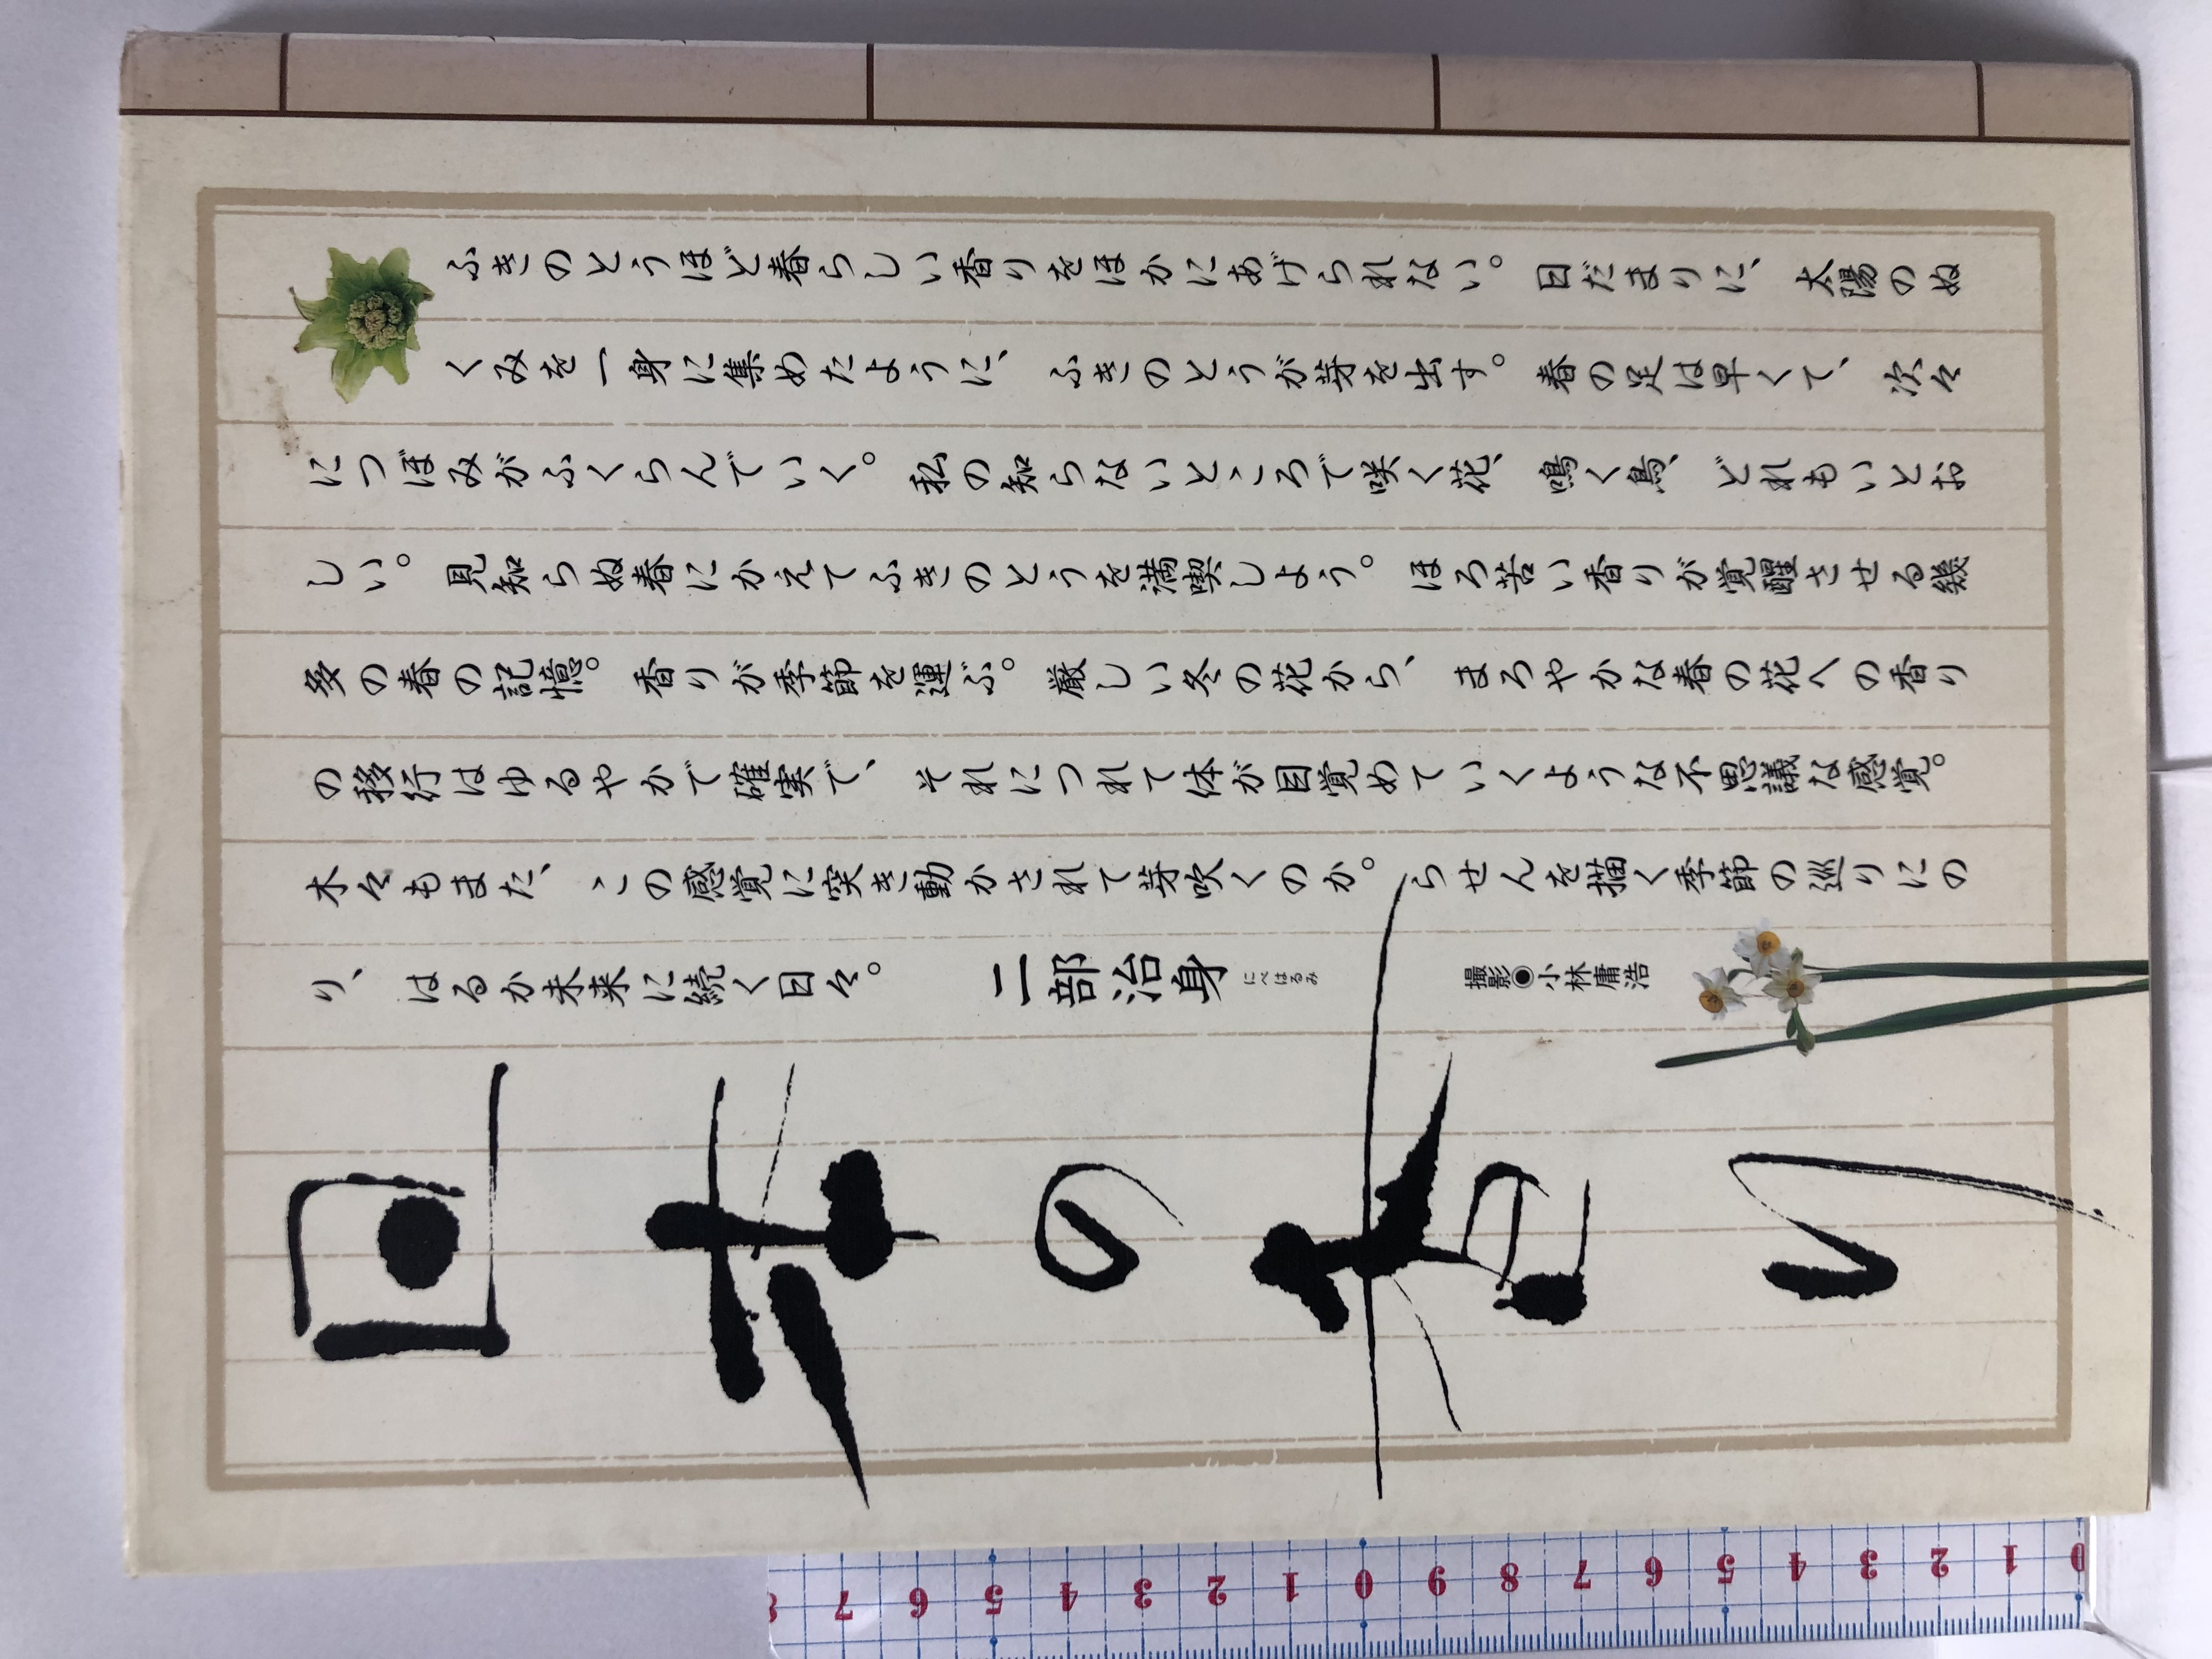 ふきのとうほど春らしい香りをほかにあげられない。日だまりに、太陽のぬ
くみを一身に集めたように、ふきのとうが芽を出す。春の足は早くて、次々
につぼみがふくらんでいく。私の知らないところで咲く花、鳴く鳥、どれもいとお
しい。見知らぬ春にかえてふきのとうを満喫しよう。ほろ苦い香りが覚醒させる幾
多の春の記憶。香りが季節を運ぶ。厳しい冬の花から、まろやかな春の花への香り
の移行はゆるやかで確実で、それにつれて体が目覚めていくような不思議な感覚。
木々もまた、この感覚に突き動かされて芽吹くのか。らせんを描く季節の巡りにの
り、はるか未来に続く日々。
二部治身 にべはるみ
撮影◉小林庸浩
日本の香り
0 1 2 3 4 5 6 7 8 9 0 1 2 3 4 5 6 7